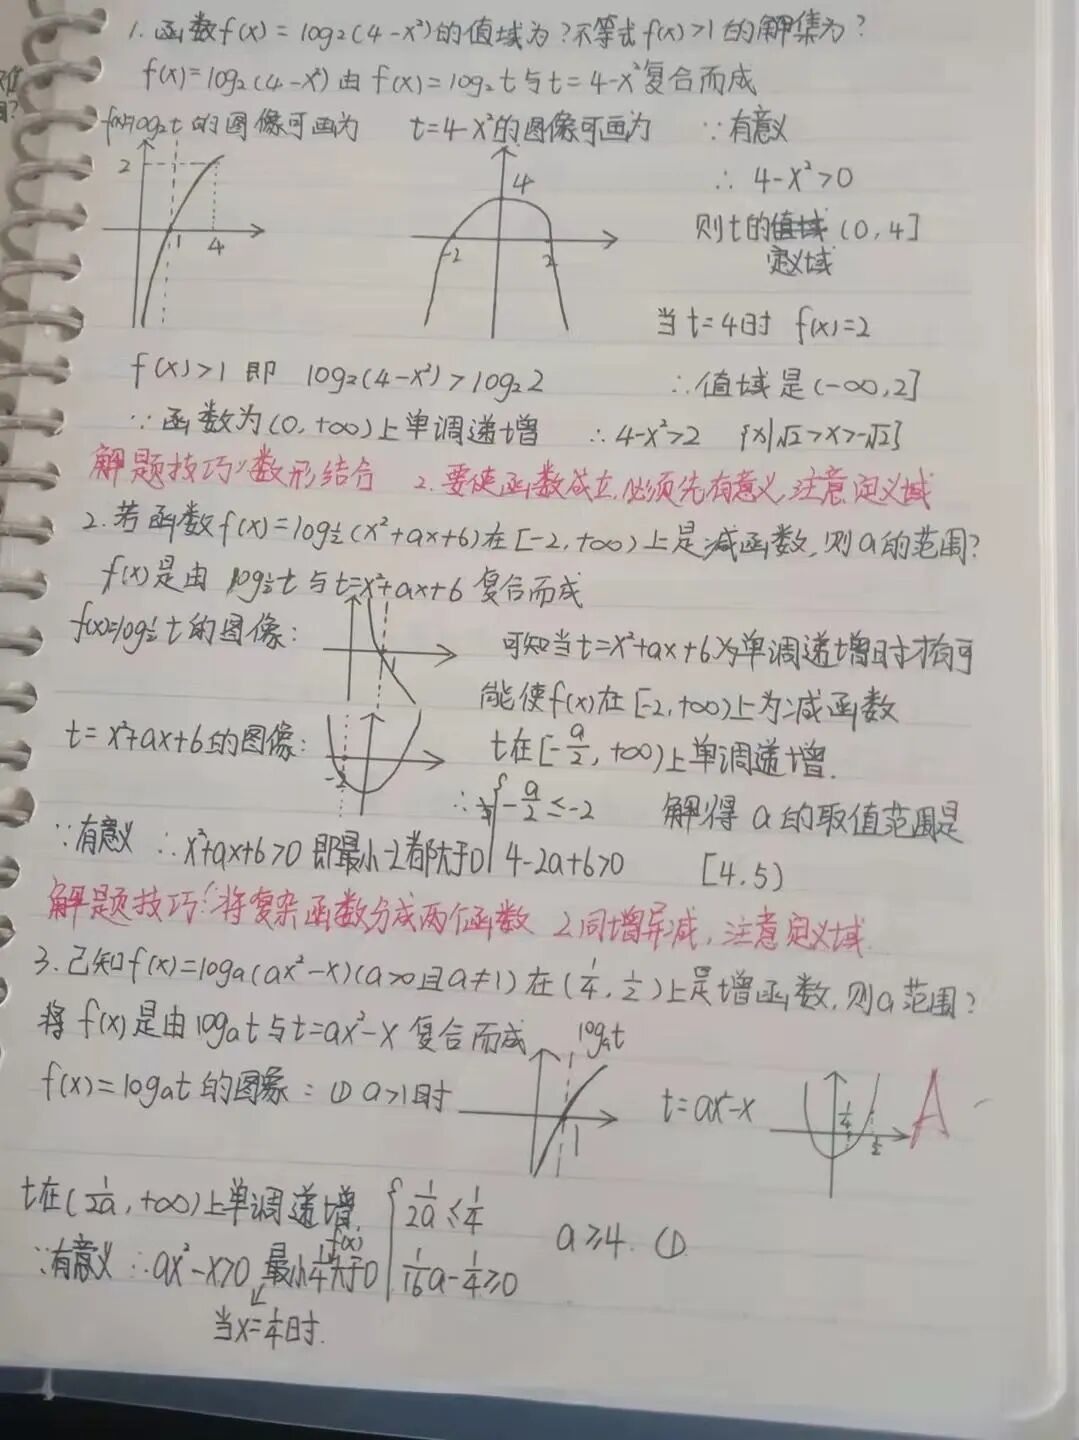 1. 函数f(x)=log₂(4-x²)的值域为?不等式f(x)>1的解集为?
f(x)=log₂(4-x²)由f(x)=log₂t与t=4-x²复合而成
f(x)=log₂t的图像可画为 t=4-x²的图像可画为 ∵有意义
2 1 4
4 -2 2
∴ 4-x²>0
则t的值域(0,4]
定义域
当t=4时 f(x)=2
f(x)>1即 log₂(4-x²)>log₂2 ∴值域是(-∞,2]
∵函数为(0,+∞)上单调递增 ∴4-x²>2 {x|√2>x>-√2}
解题技巧:1.数形结合 2.要使函数成立,必须先有意义,注意定义域
2.若函数f(x)=log½(x²+ax+6)在[-2,+∞)上是减函数,则a的范围?
f(x)是由 log½t与t=x²+ax+6复合而成
f(x)=log½t的图像: 1
可知当t=x²+ax+6为单调递增时才有可
能使f(x)在[-2,+∞)上为减函数
t=x²+ax+6的图像: -2
t在[-a/2,+∞)上单调递增.
∴ { -a/2≤-2 解得a的取值范围是
∵有意义 ∴x²+ax+6>0 即最小-2都大于0 4-2a+6>0 [4,5)
解题技巧:1.将复杂函数分成两个函数 2.同增异减,注意定义域.
3.已知f(x)=logₐ(ax²-x)(a>0且a≠1)在(1/4,1/2)上是增函数,则a范围?
将f(x)是由logₐt与t=ax²-x复合而成
f(x)=logₐt的图象:①a>1时 logₐt 1 t=ax²-x 1/4 1/2 A
t在(1/2a,+∞)上单调递增. { 1/2a≤1/4
a≥4. ①
∵有意义 ∴ax²-x>0 最小1/4 f(x)大于0 1/16a-1/4≥0
当x=1/4时.